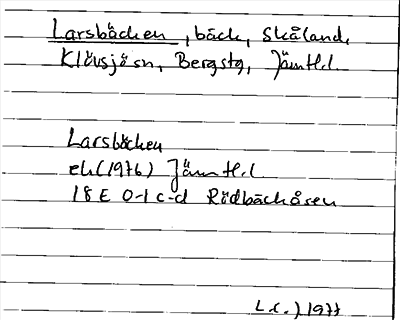 Larsbäcken, bäck, Skåland,
Klövsjösn, Bergstg, Jämtl.l.
Larsbäcken
ek (1976) Jämtl.l
18 E 0-1 c-d Rödbäckåsen
1977